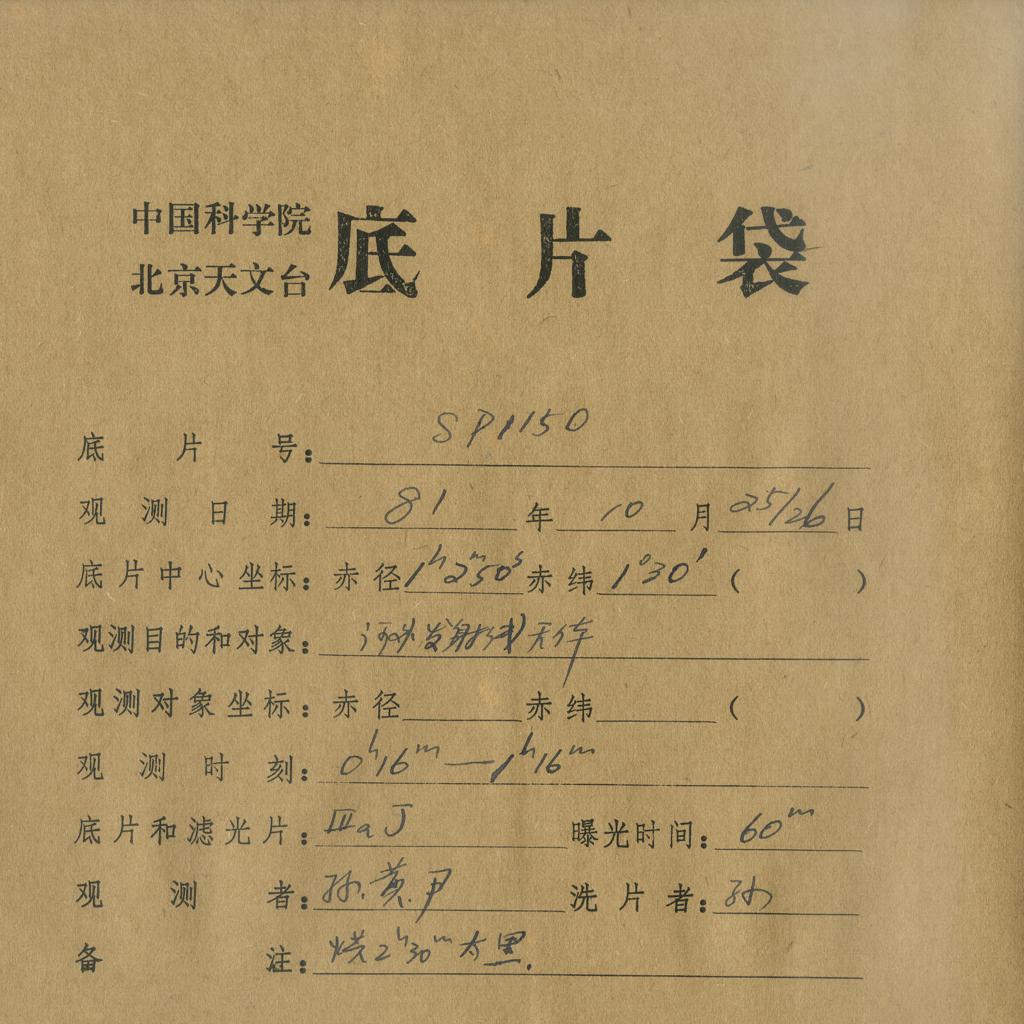 中国科学院
北京天文台
底片袋
底片号： SP1150
观测日期： 81 年 10 月 25/26 日
底片中心坐标：赤径 1ʰ2ᵐ50ˢ 赤纬 1°30′ （ ）
观测目的和对象： 发射线天体
观测对象坐标：赤径 赤纬 （ ）
观测时刻： 0ʰ16ᵐ—1ʰ16ᵐ
底片和滤光片： ⅢaJ 曝光时间： 60ᵐ
观测者： 孙.黄.尹 洗片者： 孙
备注： 烘2ʰ30ᵐ 太黑.